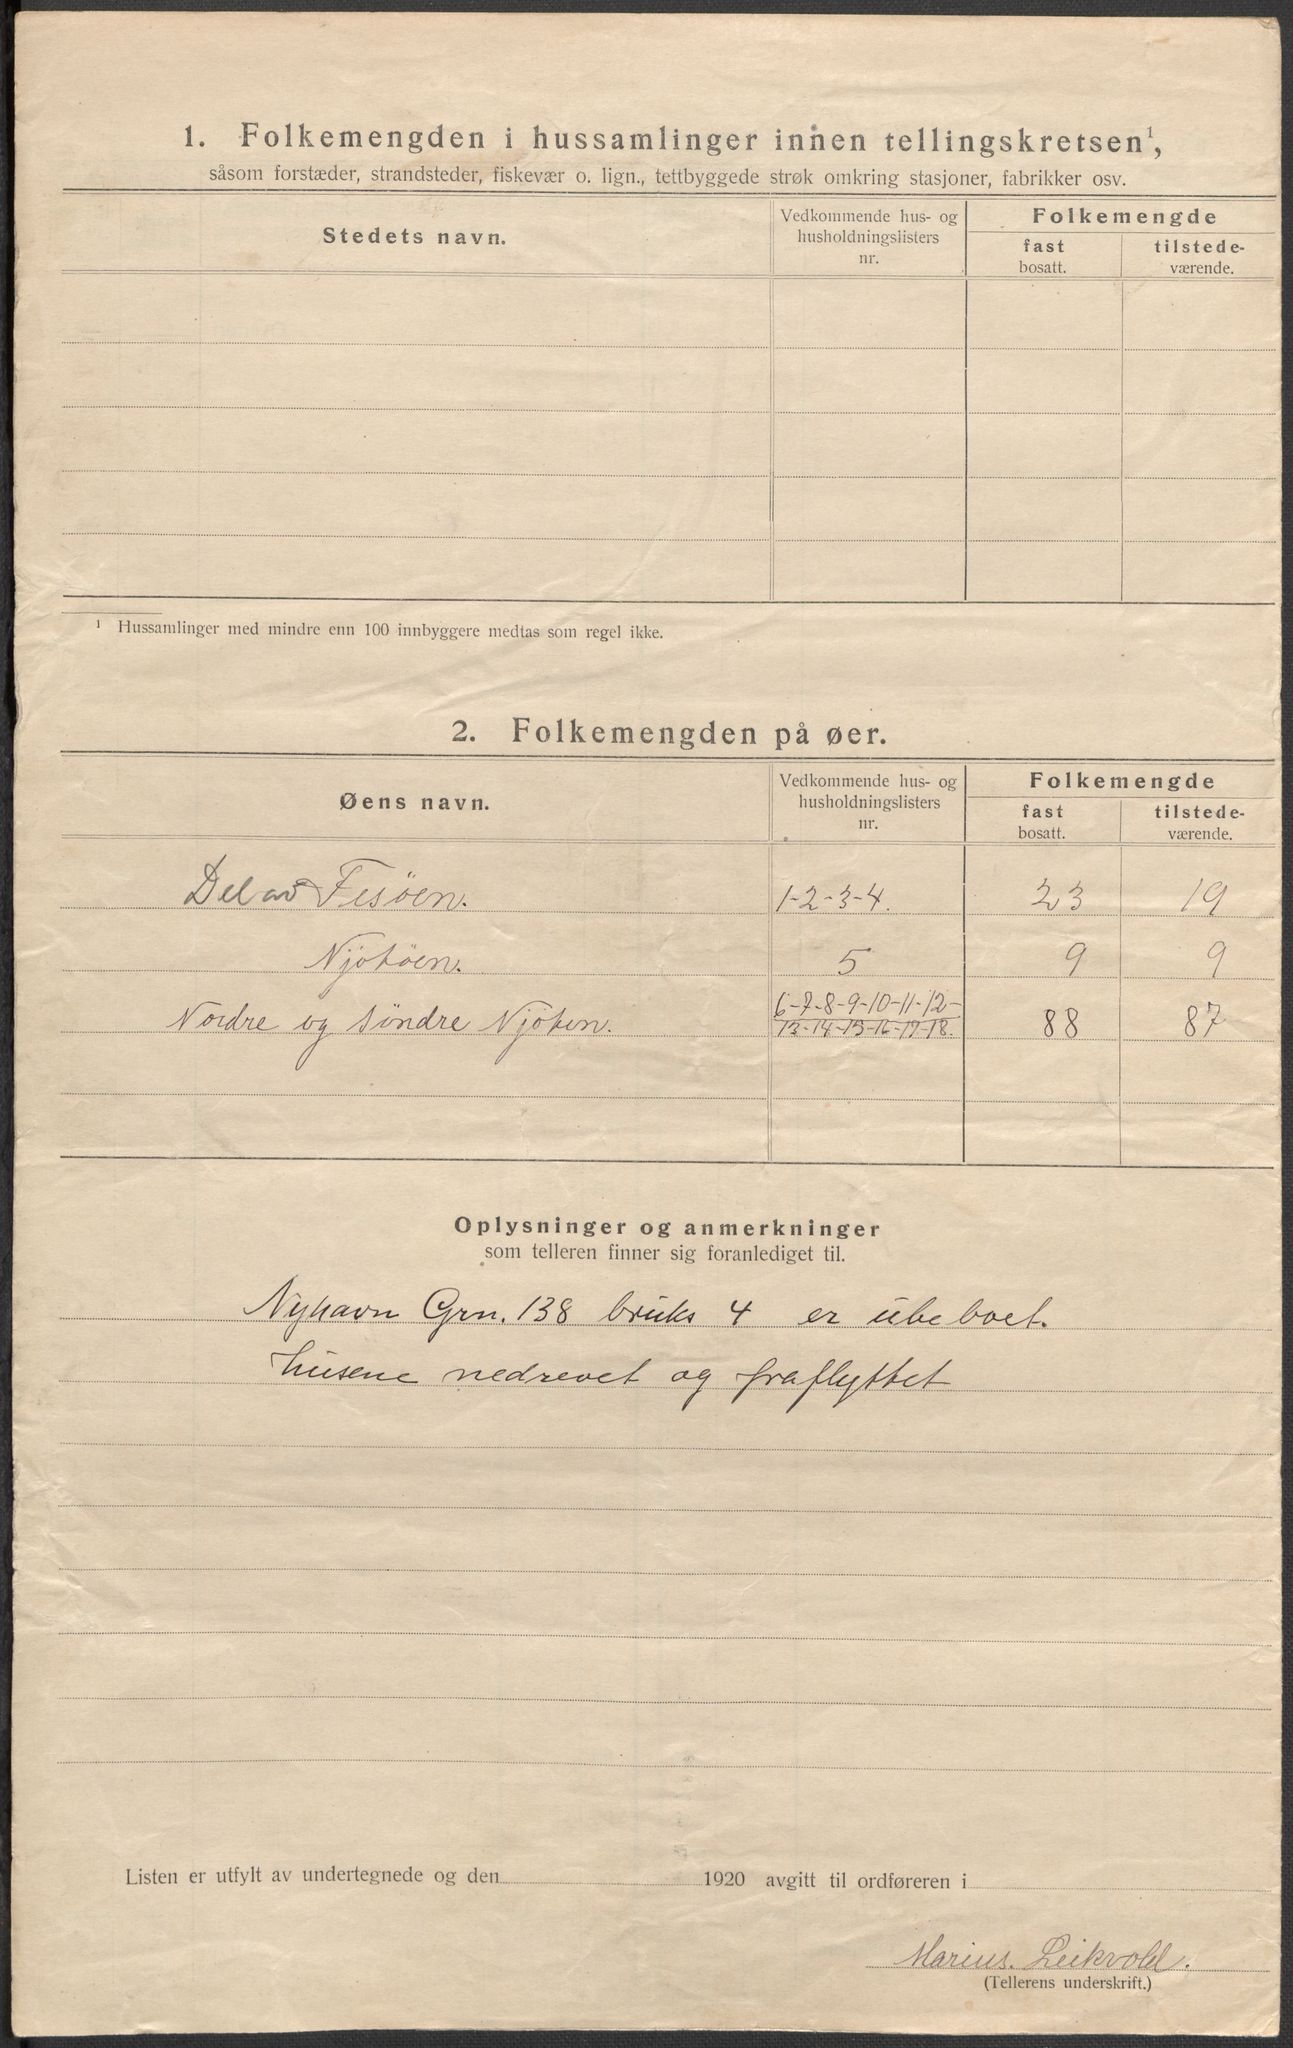 1. Folkemengden i hussamlinger innen tellingskretsen¹,
såsom forstæder, strandsteder, fiskevær o. lign., tettbyggede strøk omkring stasjoner, fabrikker osv.
Stedets navn.
Vedkommende hus- og
husholdningslisters
nr.
Folkemengde
fast
bosatt.
tilstede-
værende.
¹ Hussamlinger med mindre enn 100 innbyggere medtas som regel ikke.
2. Folkemengden på øer.
Øens navn.
Vedkommende hus- og
husholdningslisters
nr.
Folkemengde
fast
bosatt.
tilstede-
værende.
Del av Fesöen. 1-2-3-4. 23 19
Njötöen. 5 9 9
Nordre og Söndre Njöten. 6-7-8-9-10-11-12- 88 87
13-14-15-16-17-18.
Oplysninger og anmerkninger
som telleren finner sig foranlediget til.
Nyhavn Grn. 138 bruks 4 er ubeboet.
husene nedrevet og fraflyttet
Listen er utfylt av undertegnede og den 1920 avgitt til ordføreren i
Marius. Leikvold.
(Tellerens underskrift.)